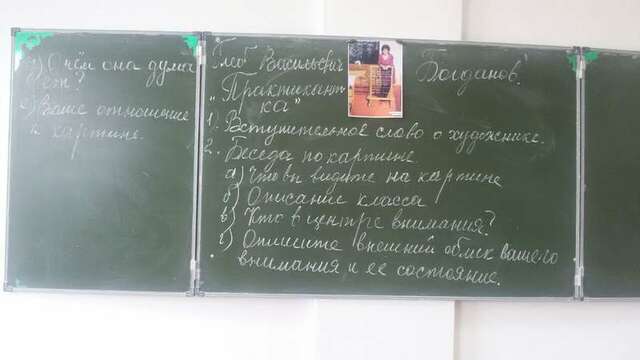 Глеб Васильевич Богданов.
"Практикант-
ка"
1. Вступительное слово о художнике.
2. Беседа по картине
а) Что вы видите на картине
б) Описание класса
в) Кто в центре внимания?
г) Опишите внешний облик вашего
внимания и ее состояние.
д) О чём она дума
ет?
е) Ваше отношение
к картине.